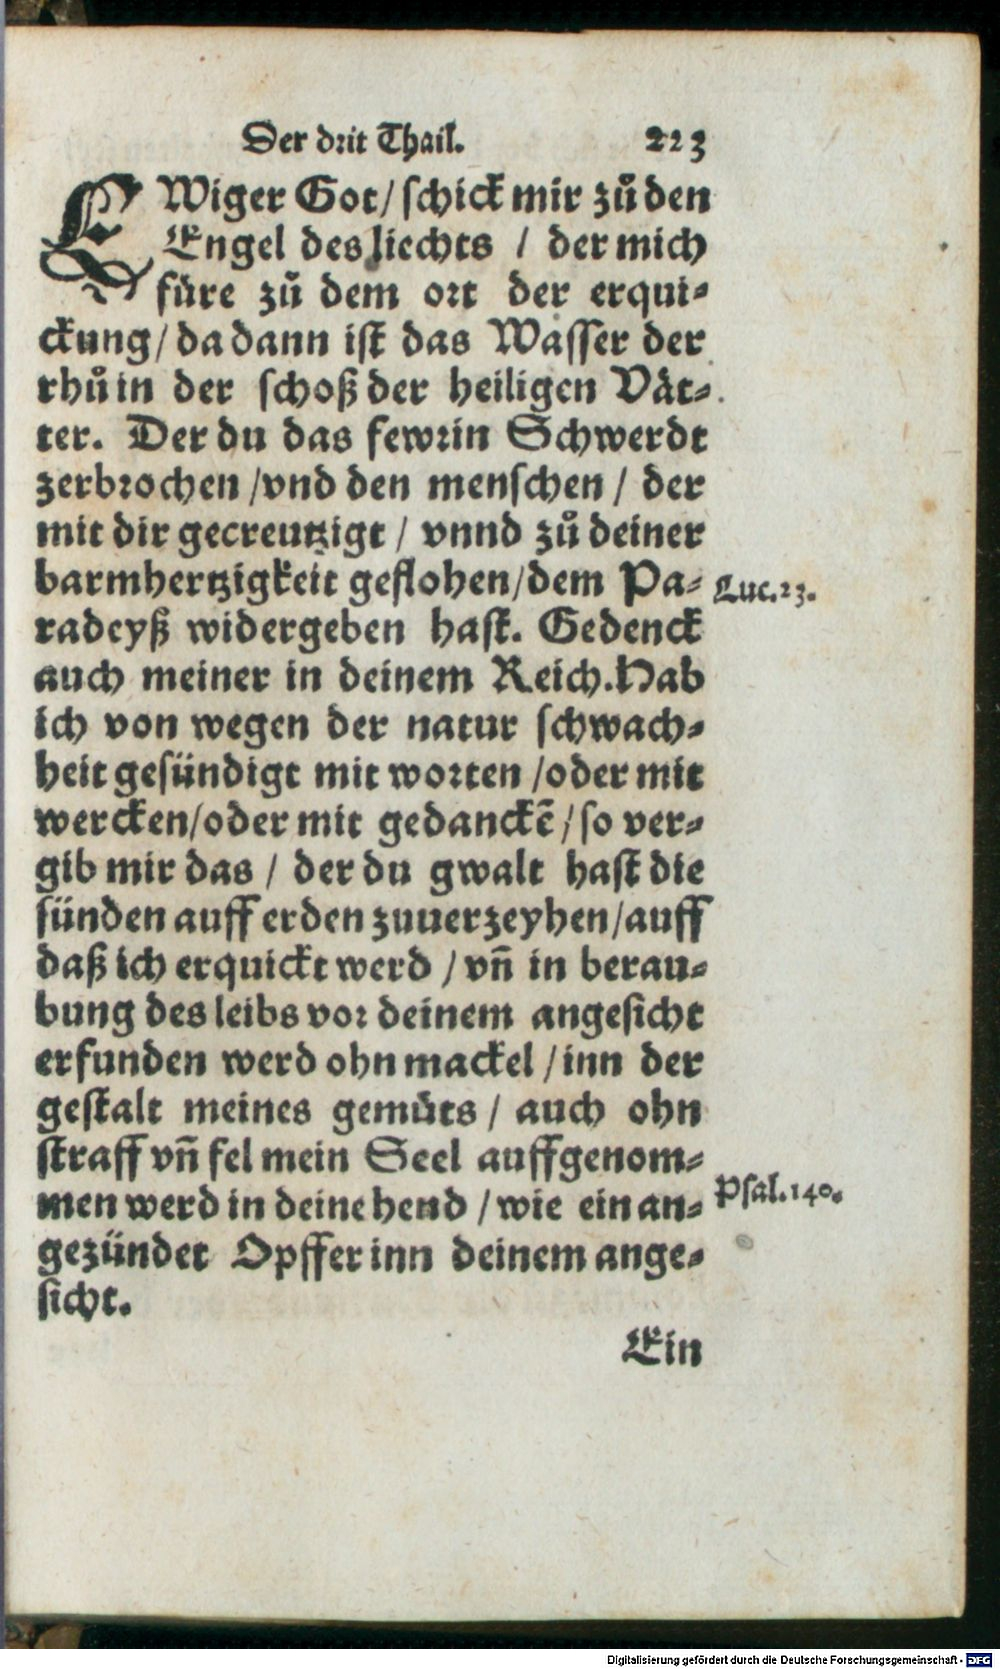 Der drit Thail. 223
EWiger Got/ schick mir zů den
Engel des liechts / der mich
füre zů dem ort der erqui-
ckung/ da dann ist das Wasser der
rhů in der schoß der heiligen Vät-
ter. Der du das fewrin Schwerdt
zerbrochen /vnd den menschen / der
mit dir gecreutzigt / vnnd zů deiner
barmhertzigkeit geflohen/dem Pa-
radeyß widergeben hast. Gedenck
auch meiner in deinem Reich. Hab
ich von wegen der natur schwach-
heit gesündigt mit worten /oder mit
wercken/oder mit gedanckē / so ver-
gib mir das / der du gwalt hast die
sünden auff erden zuuerzeyhen/auff
daß ich erquickt werd / vñ in berau-
bung des leibs vor deinem angesicht
erfunden werd ohn mackel / inn der
gestalt meines gemüts / auch ohn
straff vñ fel mein Seel auffgenom-
men werd in deine hend / wie ein an-
gezündet Opffer inn deinem ange-
sicht.
Ein
Luc.23.
Psal.140.
Digitalisierung gefördert durch die Deutsche Forschungsgemeinschaft - DFG